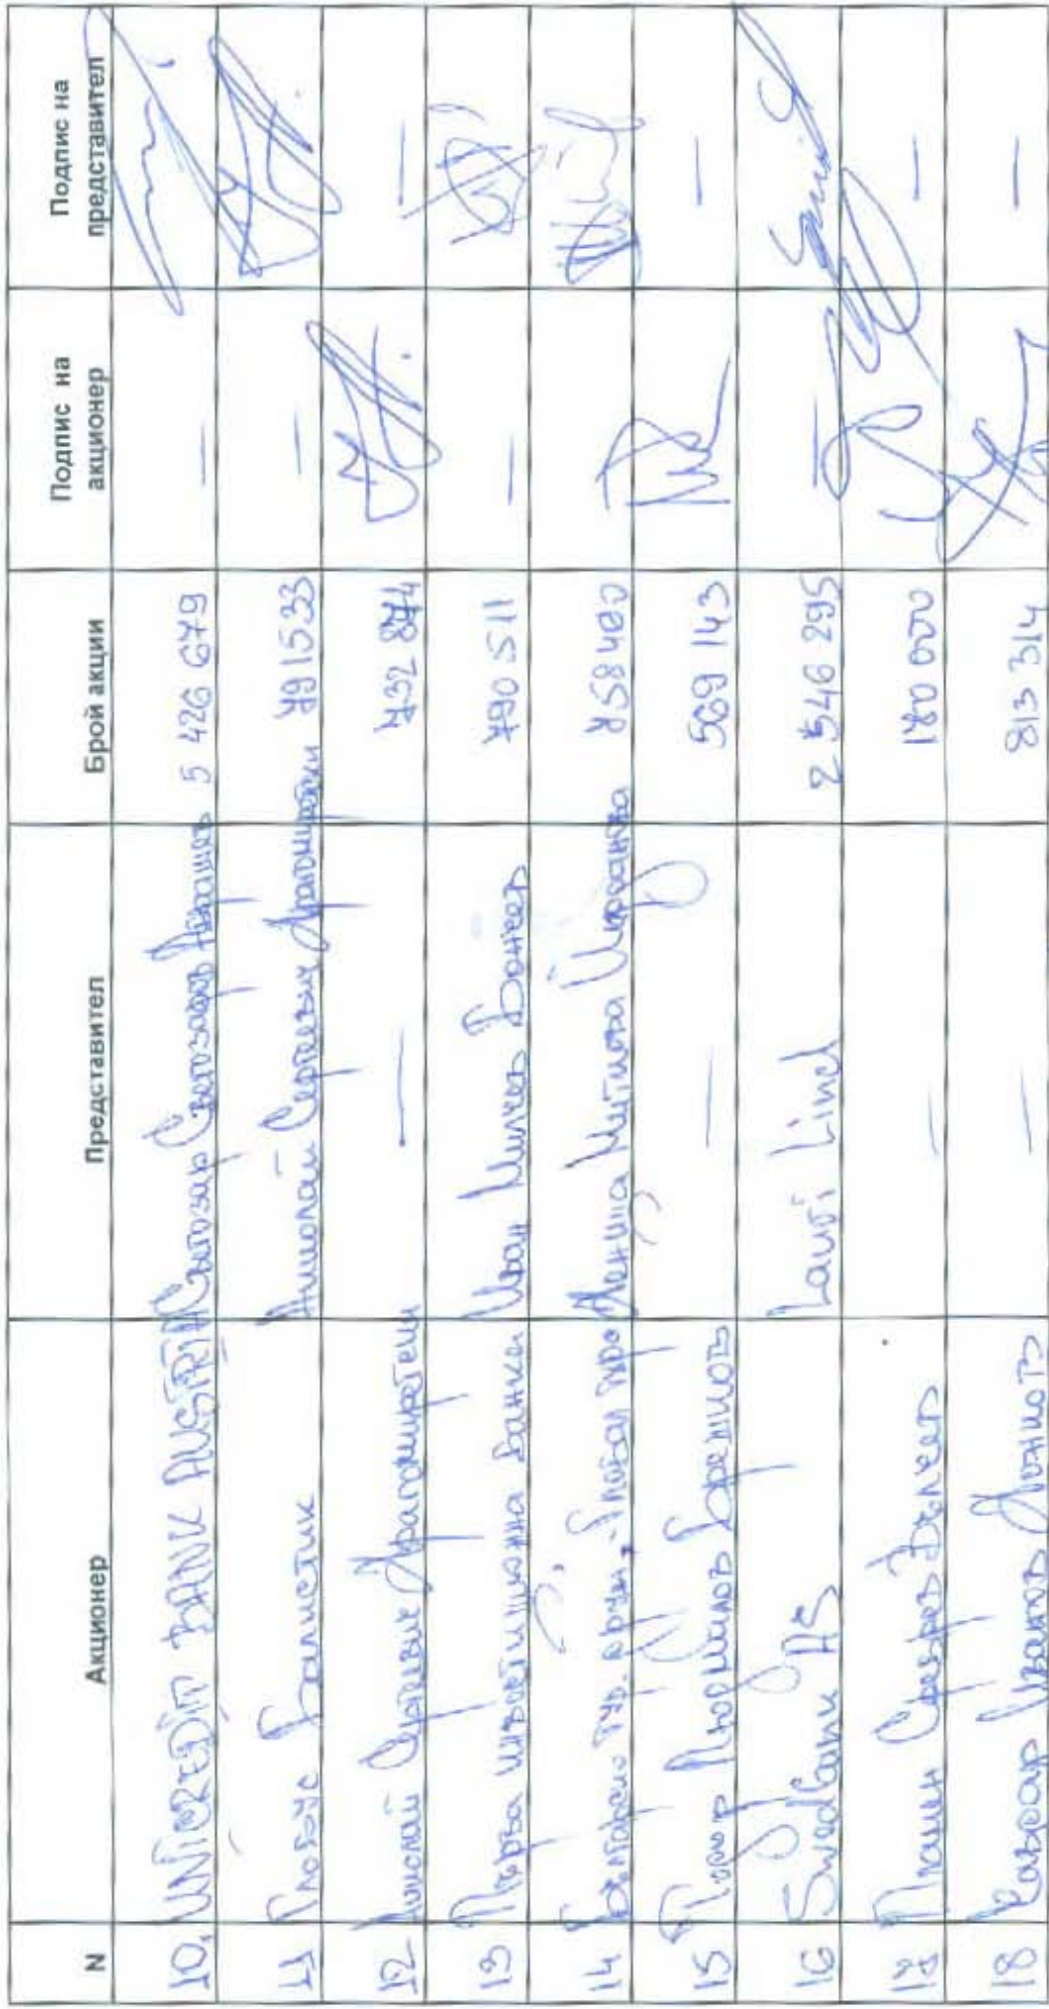 N Акционер Представител Брой акции Подпис на акционер Подпис на представител
10. UNICREDIT BANK AUSTRIA Светозар Светозаров Абрашев 5 426 679 —
11 Глобус Балистик Николай Сергеевич Драгомирецки 791533 —
12 Николай Сергеевич Драгомирецки — 732 874 —
13 Първа инвестиционна банка Иван Милчев Бончев 790 511 —
14 Българско Деница Миткова 758 480
15 Тодор Людмилов Брешков — 569 143 —
16 Swedbank AS Lauri Lind 2 546 295 —
17 Пламен Дълчев — 180 000 —
18 Иванов — 813 314 —